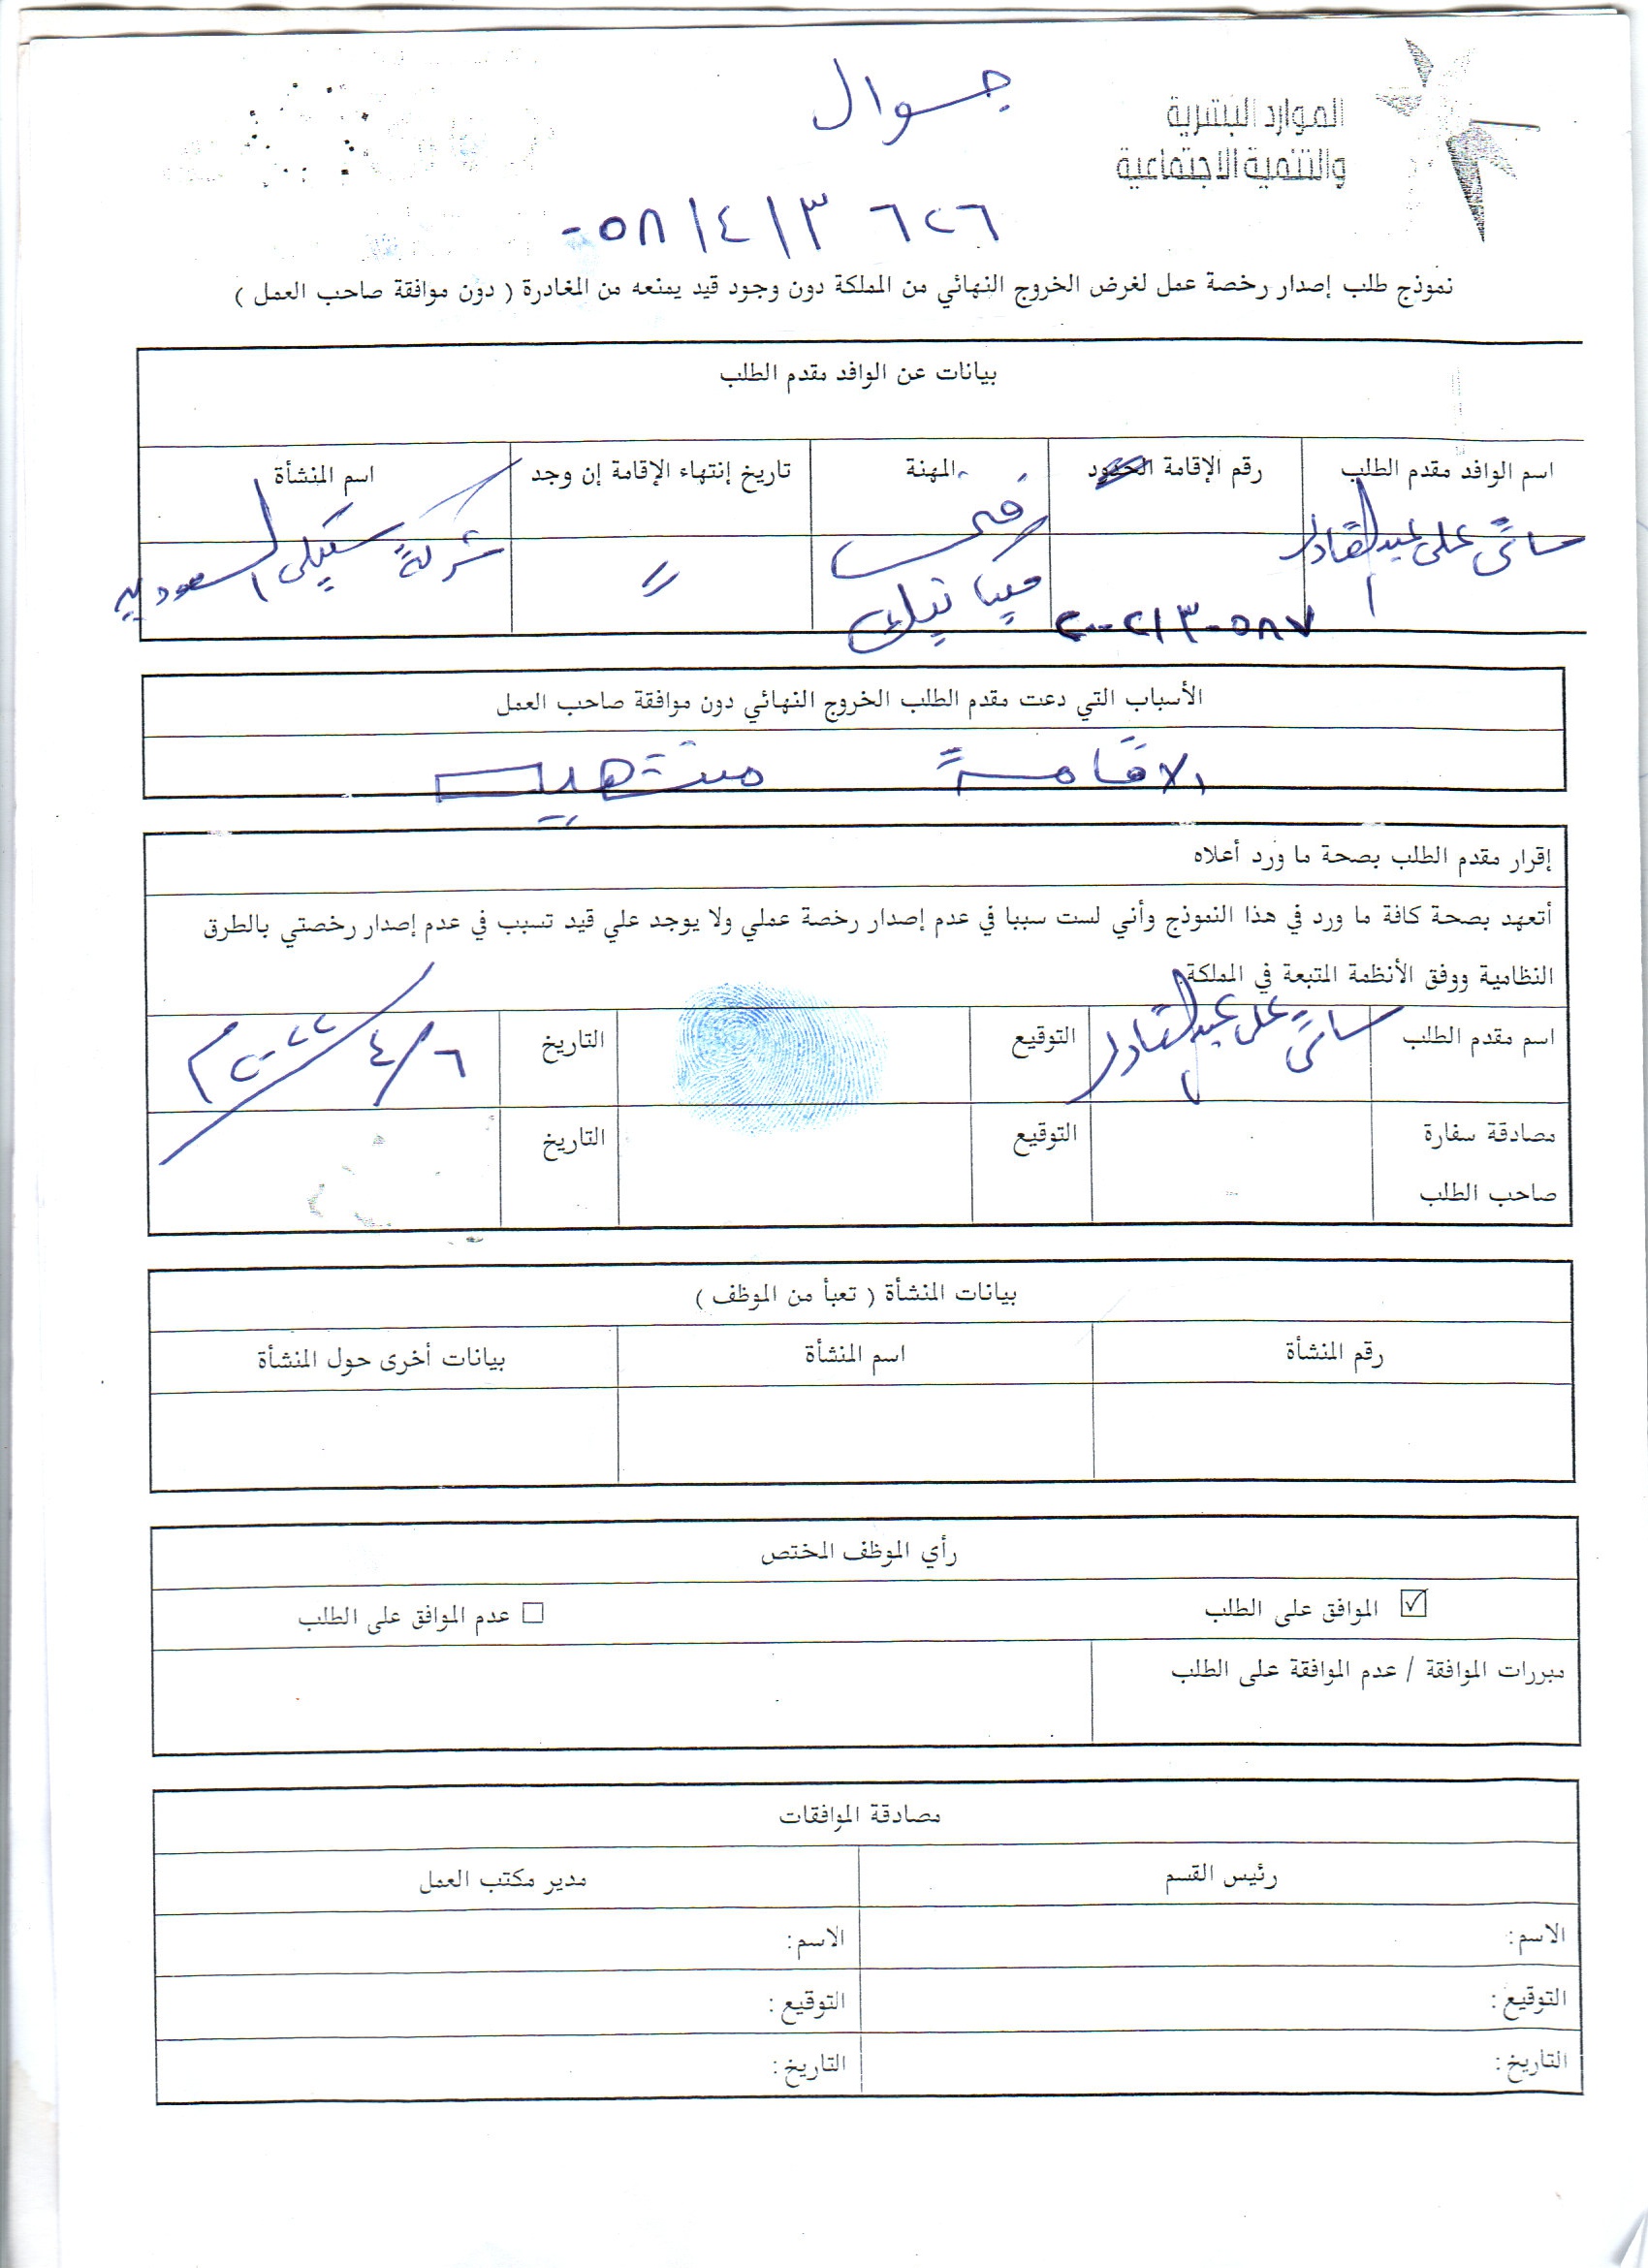 الموارد البشرية
والتنمية الاجتماعية
جوال
٠٥٨١٤١٣٦٢٦
نموذج طلب إصدار رخصة عمل لغرض الخروج النهائي من المملكة دون وجود قيد يمنعه من المغادرة ( دون موافقة صاحب العمل )
بيانات عن الوافد مقدم الطلب
اسم الوافد مقدم الطلب رقم الإقامة الحدود المهنة تاريخ إنتهاء الإقامة إن وجد اسم المنشأة
علي عبدالقادر ٢٠٠٢١٣٠٥٨٧ فني ميكانيك 〃 شركة السعودية
الأسباب التي دعت مقدم الطلب الخروج النهائي دون موافقة صاحب العمل
الاقامة منتهية
إقرار مقدم الطلب بصحة ما ورد أعلاه
أتعهد بصحة كافة ما ورد في هذا النموذج وأني لست سببا في عدم إصدار رخصة عملي ولا يوجد علي قيد تسبب في عدم إصدار رخصتي بالطرق
النظامية ووفق الأنظمة المتبعة في المملكة.
اسم مقدم الطلب علي عبدالقادر التوقيع التاريخ ٦/٤/٢٠٢٢م
مصادقة سفارة التوقيع التاريخ
صاحب الطلب
بيانات المنشأة ( تعبأ من الموظف )
رقم المنشأة اسم المنشأة بيانات أخرى حول المنشأة
رأي الموظف المختص
☑ الموافق على الطلب ☐ عدم الموافق على الطلب
مبررات الموافقة / عدم الموافقة على الطلب
مصادقة الموافقات
رئيس القسم مدير مكتب العمل
الاسم: الاسم:
التوقيع: التوقيع:
التاريخ: التاريخ: